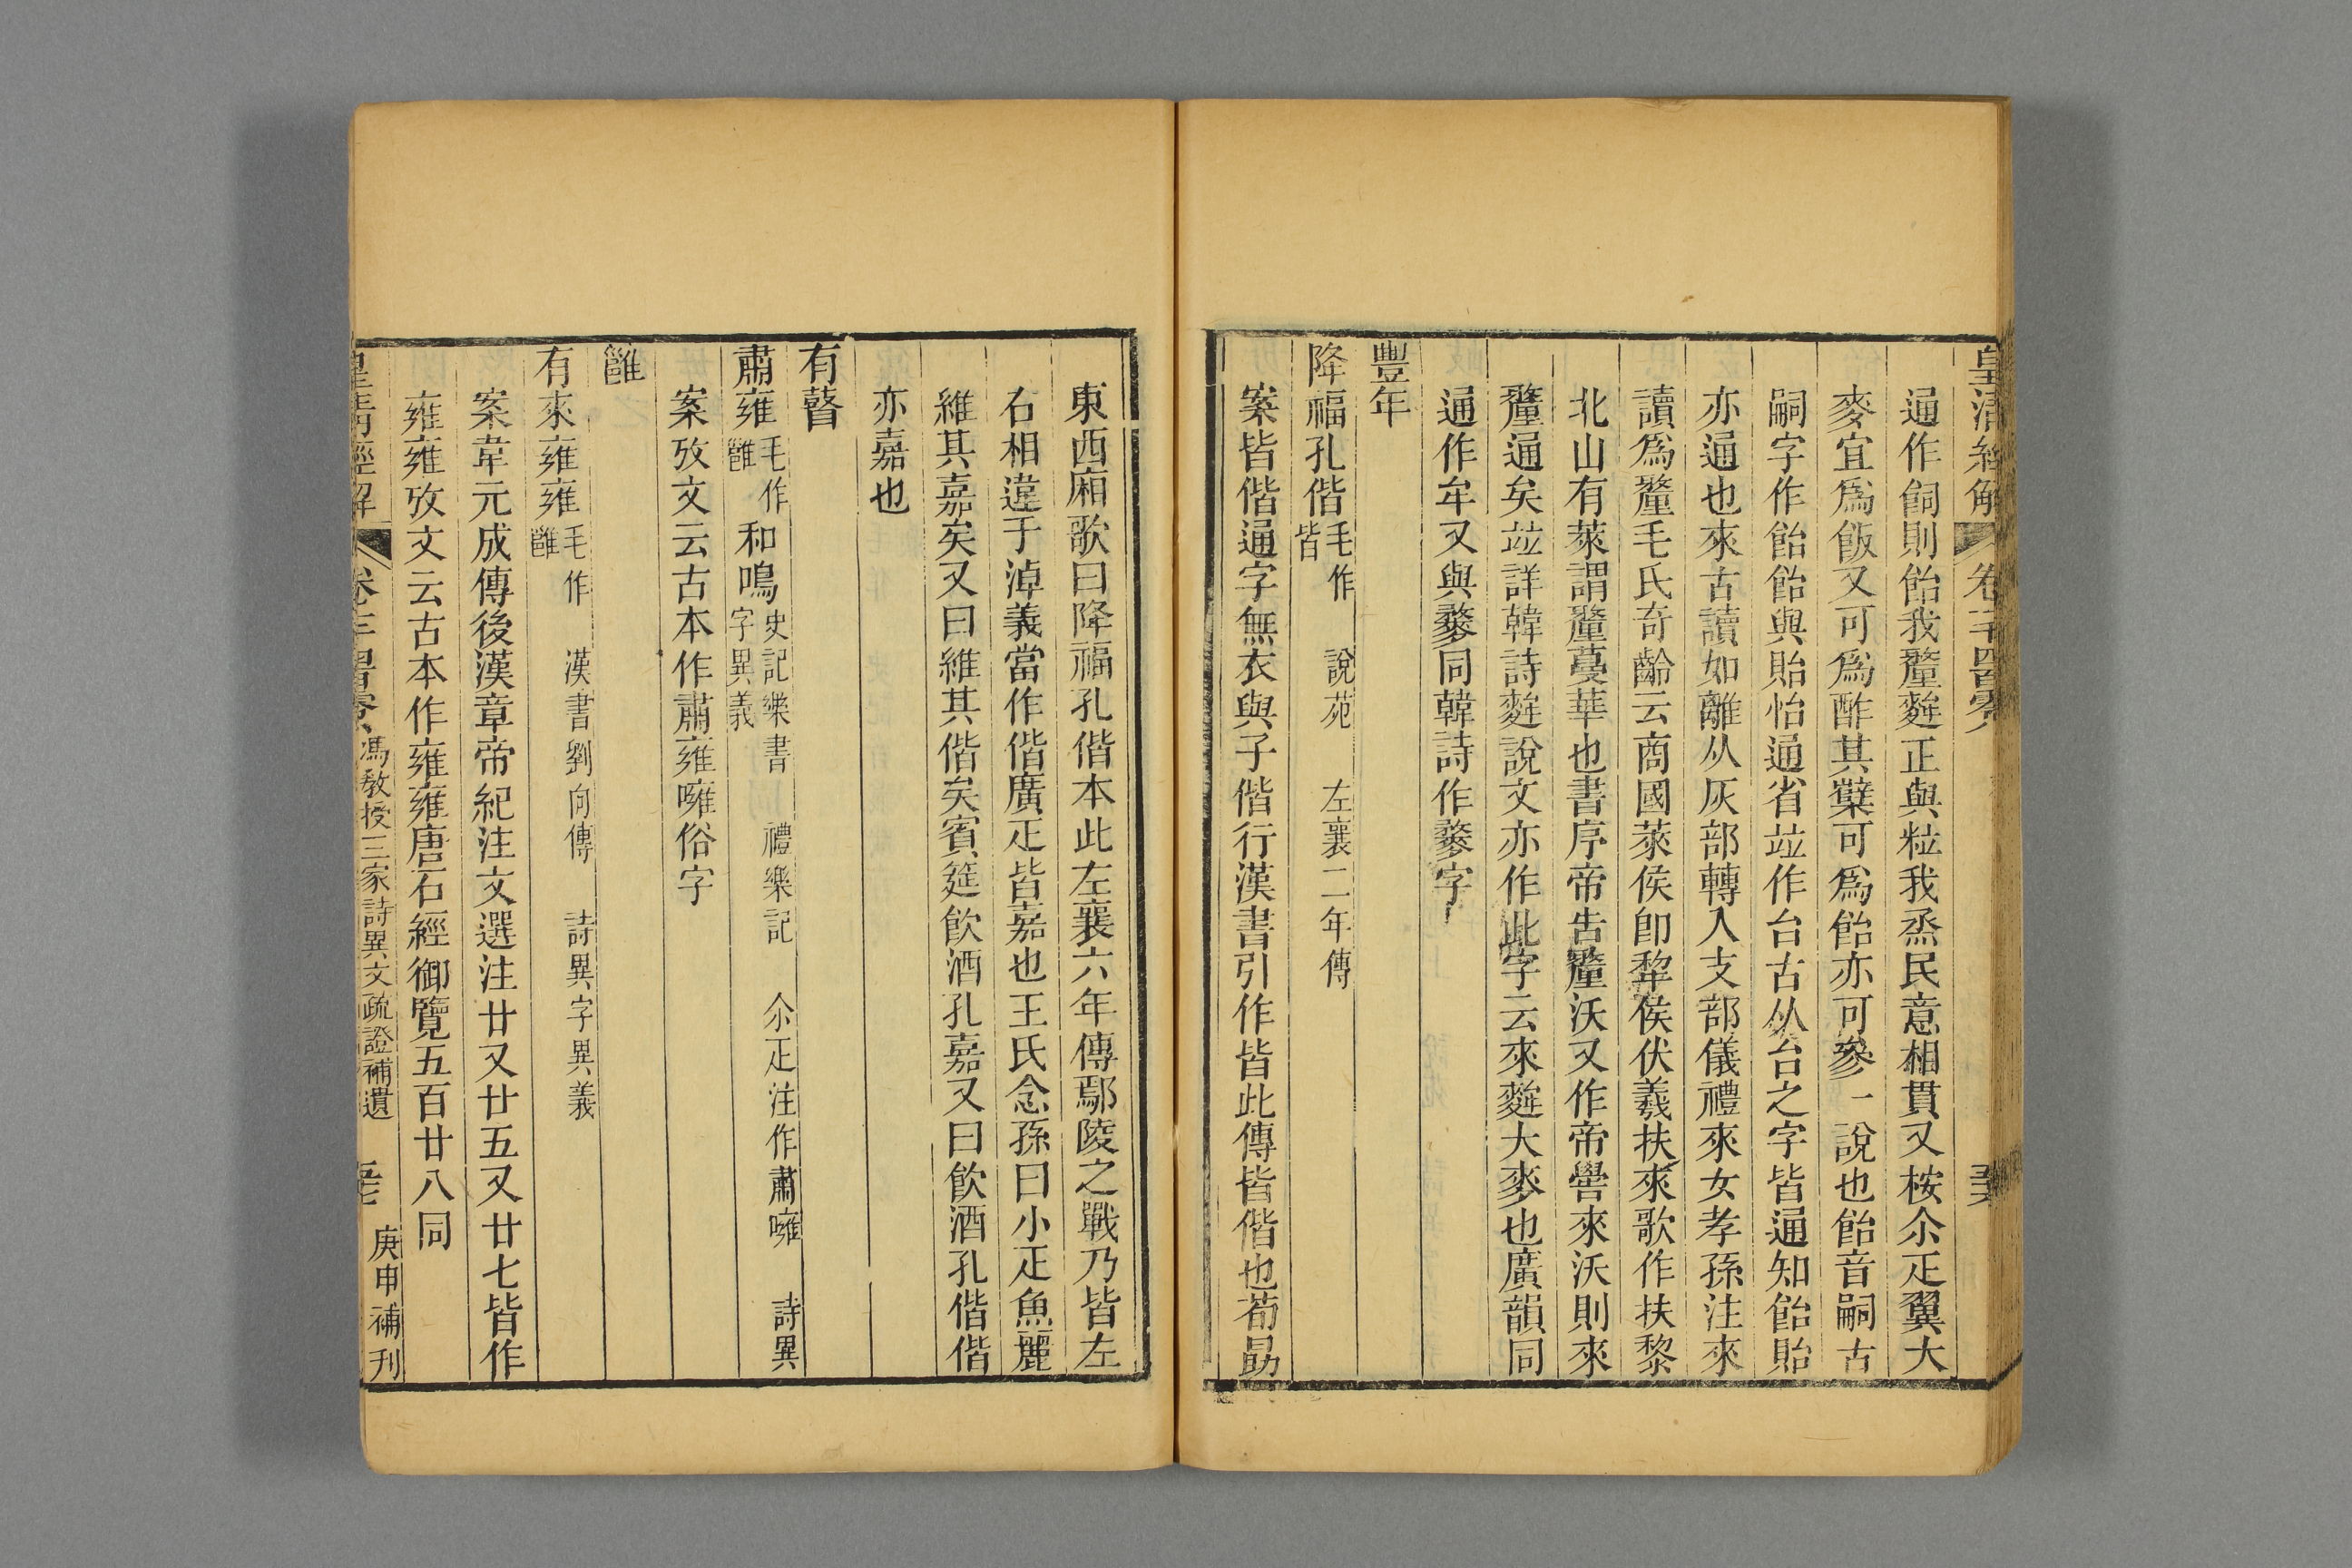 皇清經解 卷一千四百零八
通作飼則飴我釐麰正與粒我烝民意相貫又桉尒疋翼大
麥宜爲飯又可爲酢其糵可爲飴亦可參一說也飴音嗣古
嗣字作飴飴與貽怡通省竝作台古从台之字皆通知飴貽
亦通也來古讀如離从灰部轉入支部儀禮來女孝孫注來
讀爲釐毛氏奇齡云商國萊侯卽犂侯伏羲扶來歌作扶黎
北山有萊謂釐蔓華也書序帝告釐沃又作帝嚳來沃則來
釐通矣竝詳韓詩麰說文亦作此字云來麰大麥也廣韻同
通作牟又與䵩同韓詩作䵩字
豐年
降福孔偕毛作皆 說苑 左襄二年傳
案皆偕通字無衣與子偕行漢書引作皆此傳皆偕也荀勗
東西廂歌曰降福孔偕本此左襄六年傳鄢陵之戰乃皆左
右相違于淖義當作偕廣疋皆嘉也王氏念孫曰小疋魚麗
維其嘉矣又曰維其偕矣賓筵飲酒孔嘉又曰飲酒孔偕偕
亦嘉也
有瞽
肅雍毛作雝和鳴史記樂書 禮樂記 尒疋注作肅噰 詩異字異義
案攷文云古本作肅雍噰俗字
雝
有來雍雍毛作雝 漢書劉向傳 詩異字異義
案韋元成傳後漢章帝紀注文選注廿又廿五又廿七皆作
雍雍攷文云古本作雍雍唐石經御覽五百廿八同
皇清經解 卷一千四百零八 馮教授三家詩異文疏證補遺 庚申補刊